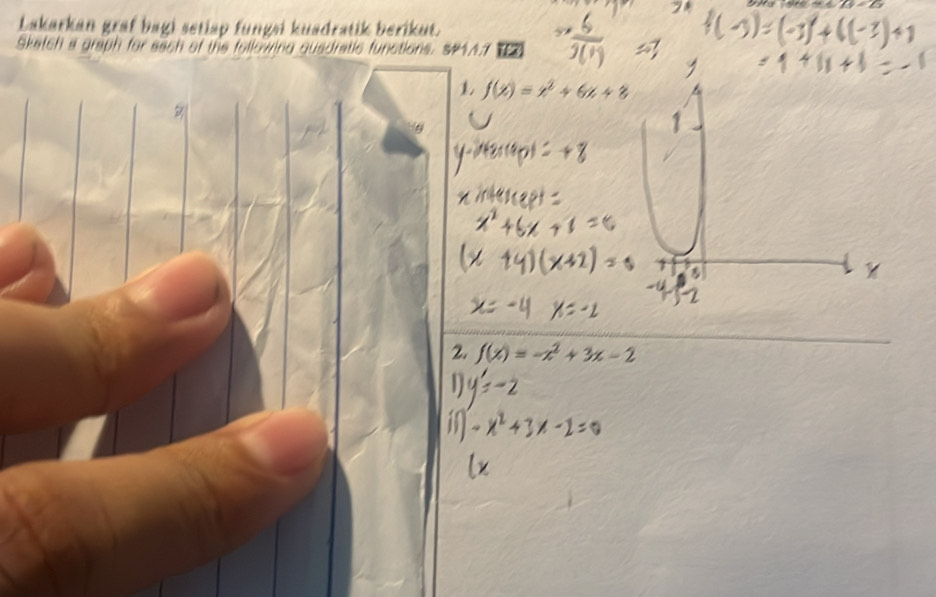 Lakarkan graf bagi setiap fungsi kuadratik berikut.
Sketch a graph for each of the following quadratic functions. SP1.1.7 TP3
6
2(1)
f(-3)=(-3)²+6(-3)+8
= -1
1. f(x) = x² + 6x + 8
y-intercept = +8
x intercept =
x² + 6x + 8 = 0
(x +4)(x+2) = 0
x = -4 x = -2
y
x
-4 -3 -2
2. f(x) = -x² + 3x - 2
i) y = -2
ii) -x² + 3x - 2 = 0
(x